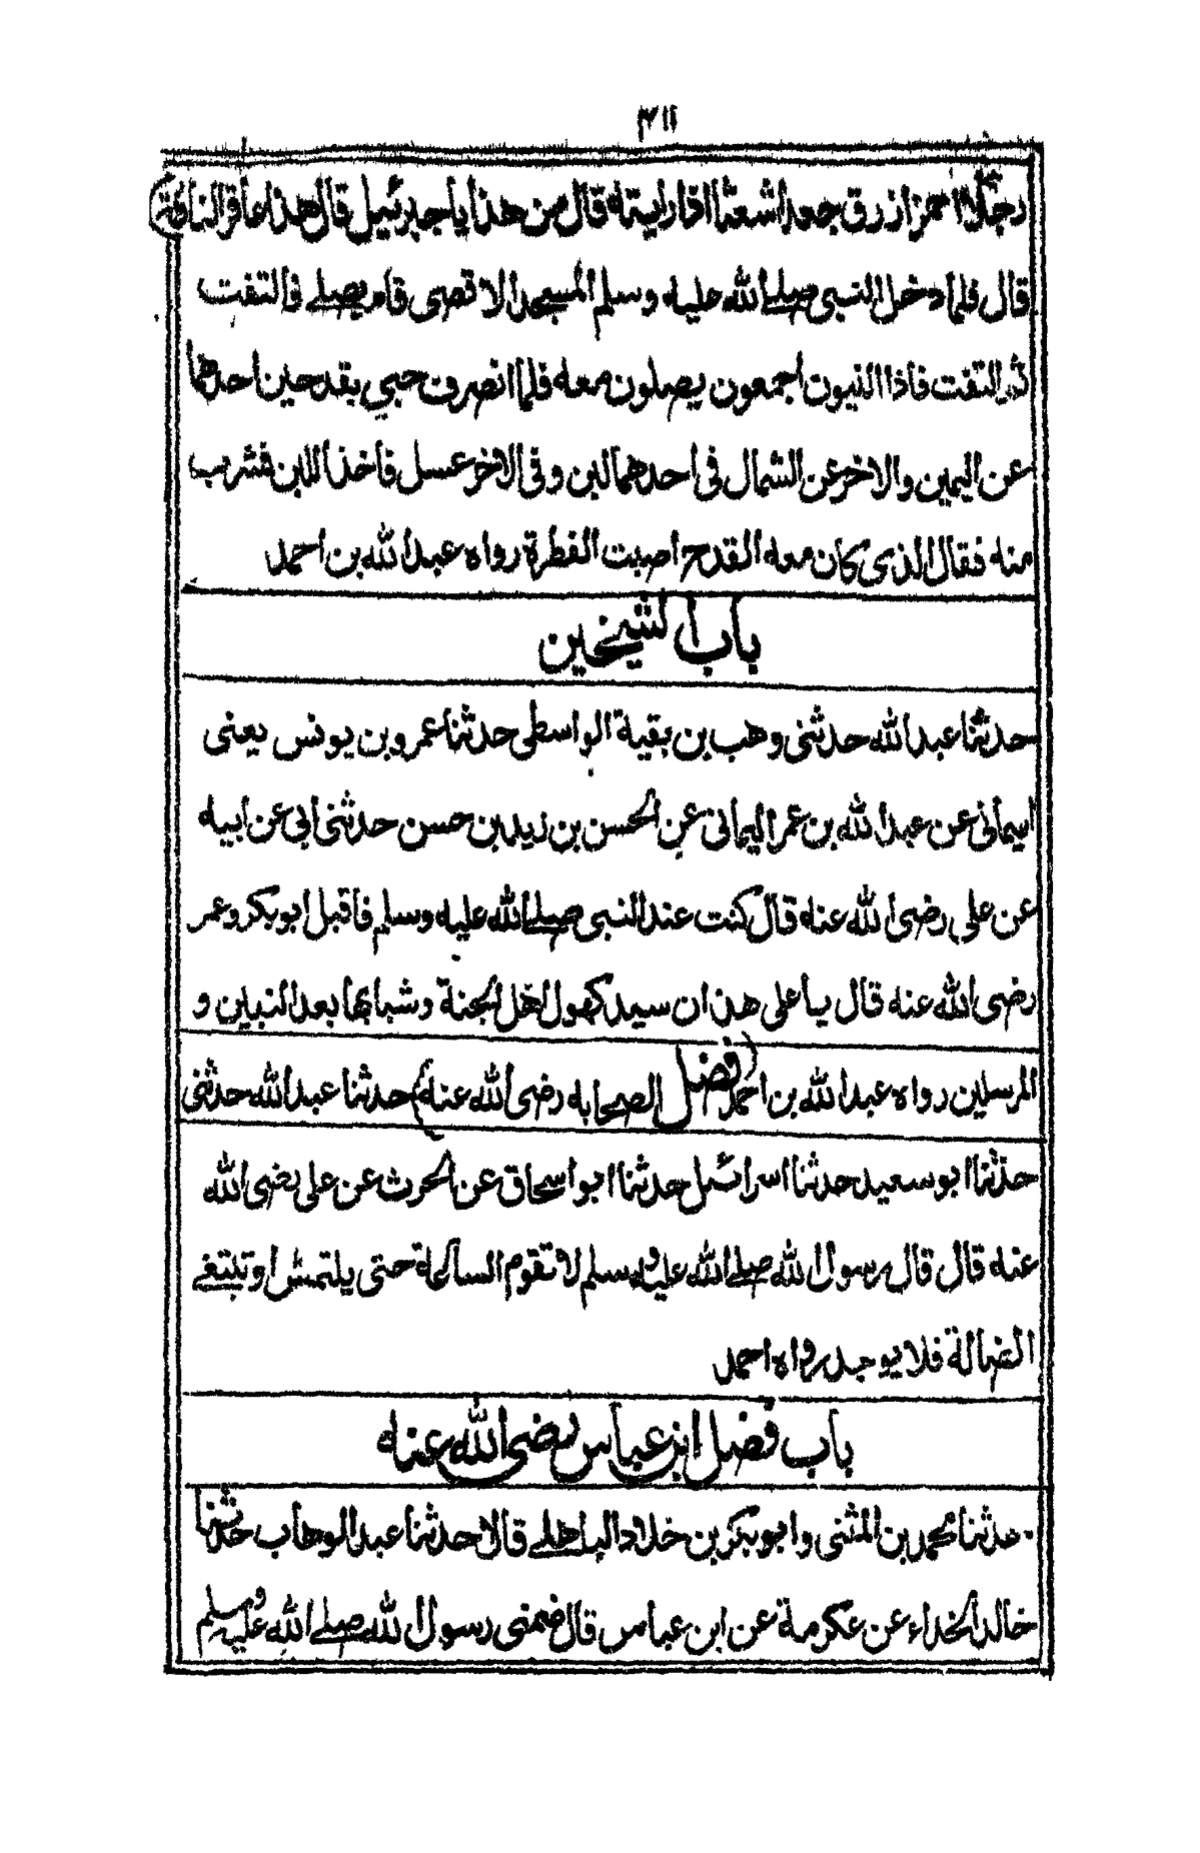 رجلا احمر ازرق جعدا شعثا اذا رايته قال من هذا يا جبرئيل قال هذا عاقر الناقة
قال فلما دخل النبي صلے الله عليه وسلم المسجد الاقصى قام يصلے فالتفت
ثم التفت فاذا النبيون اجمعون يصلون معه فلما انصرف جيي بقدحين احدهما
عن اليمين والاخر عن الشمال في احدهما لبن وفي الاخر عسل فاخذ اللبن فشرب
منه فقال الذى كان معه القدح اصبت الفطرة رواه عبد الله بن احمد
باب الشيخين
حدثنا عبد الله حدثنى وهب بن بقية الواسطى حدثنا عمرو بن يونس يعنى
اليمانى عن عبد الله بن عمر اليمانى عن الحسن بن زيد بن حسن حدثنى ابى عن ابيه
عن على رضى الله عنه قال كنت عند النبى صلے الله عليه وسلم فاقبل ابو بكر وعمر
رضى الله عنه قال يا على هذان سيد كهول اهل الجنة وشبابها بعد النبين و
المرسلين رواه عبد الله بن احمد فضل الصحابه رضى الله عنه) حدثنا عبد الله حدثنى
حدثنا ابو سعيد حدثنا اسرائيل حدثنا ابو اسحاق عن الحرث عن على رضى الله
عنه قال قال رسول الله صلے الله عليه وسلم لا تقوم الساعة حتى يلتمس او تبتغے
الضالة فلا يوجد رواه احمد
باب فضل ابن عباس رضى الله عنه
حدثنا محمد بن المثنى وابو بكر بن خلاد الباهلے قالا حدثنا عبد الوهاب حدثنا
خالد الحذاء عن عكرمة عن ابن عباس قال ضمنى رسول الله صلے الله عليه وسلم